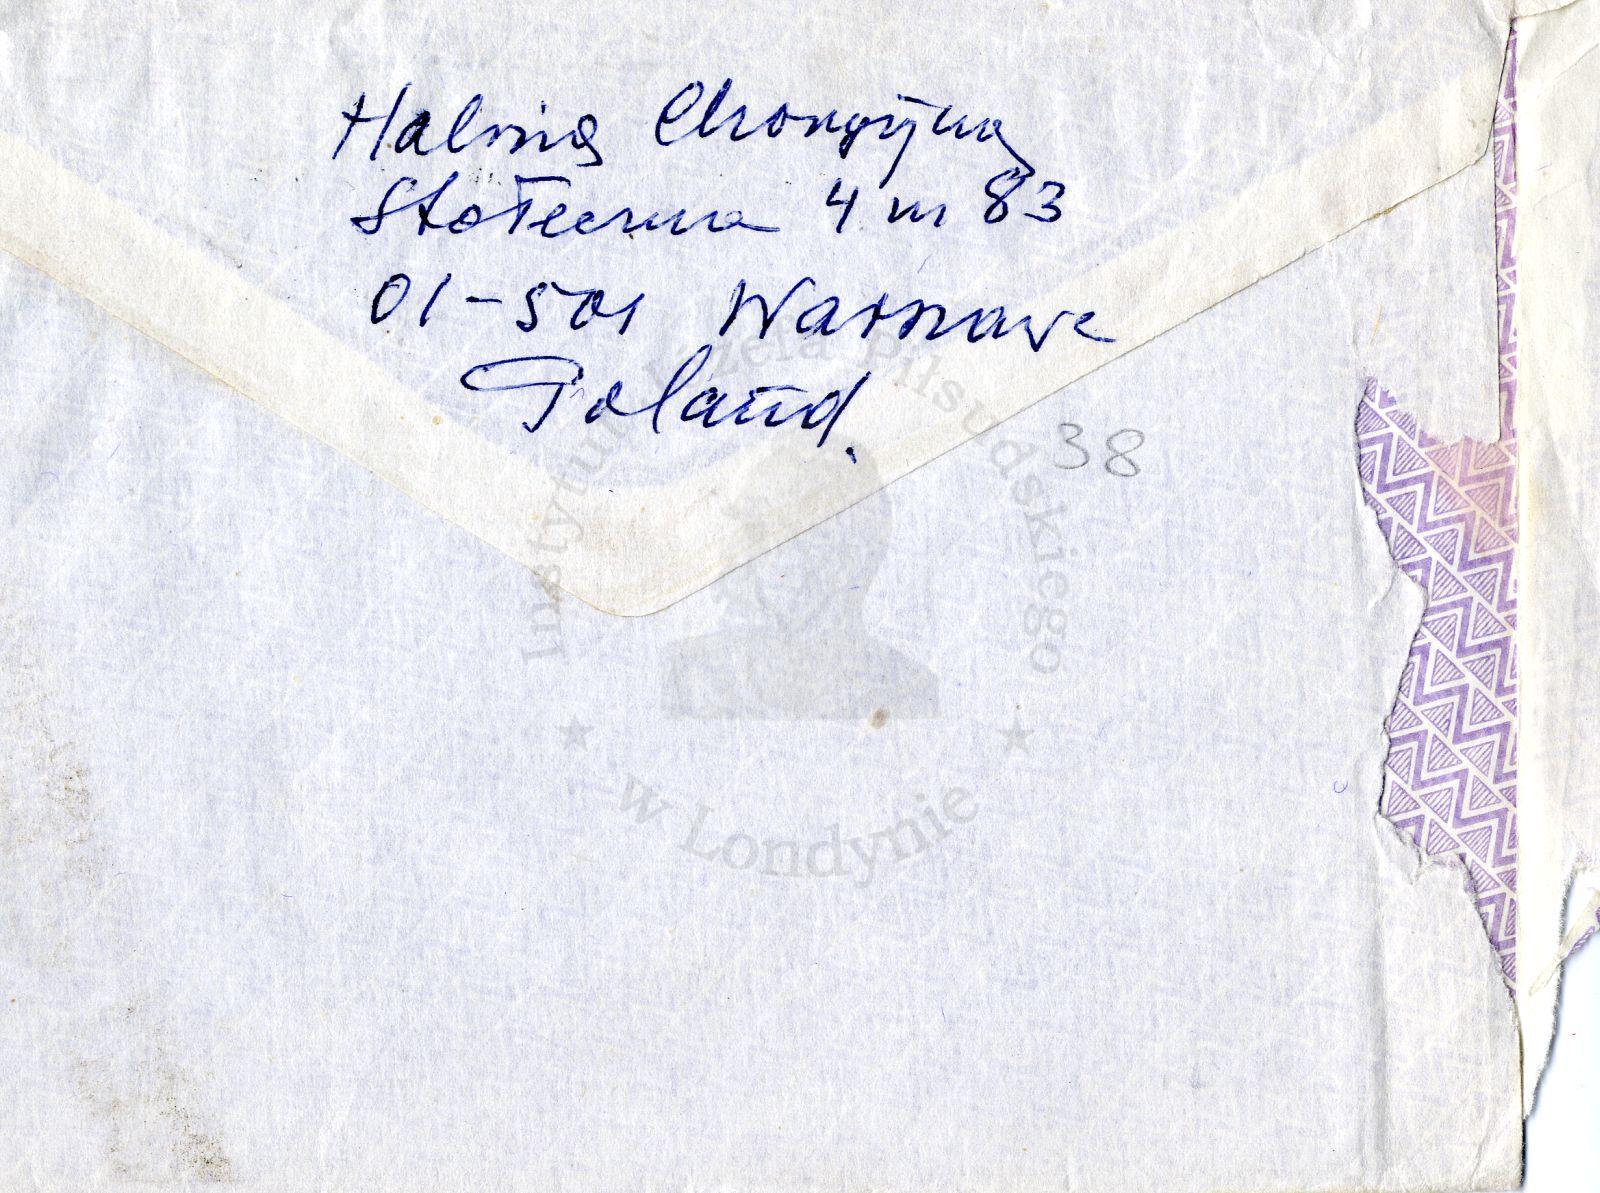 Halina
Stołeczna 4 m 83
01-501 Warszawa
Poland.
38
Instytut Józefa Piłsudskiego
w Londynie